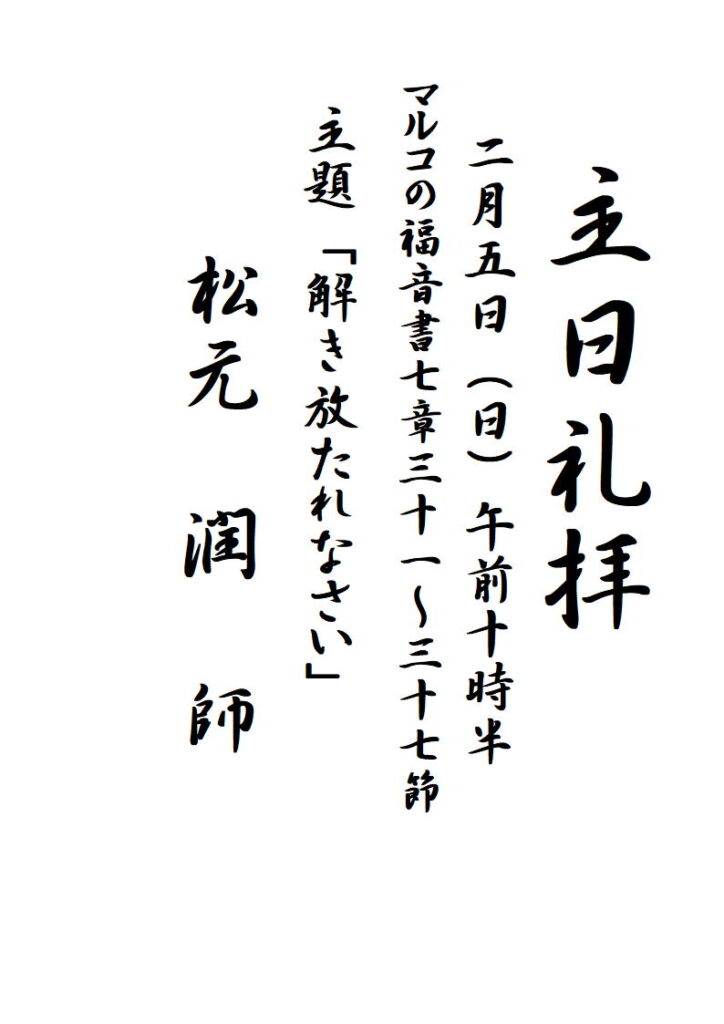 主日礼拝
二月五日（日）午前十時半
マルコの福音書七章三十一～三十七節
主題「解き放たれなさい」
松元 潤 師